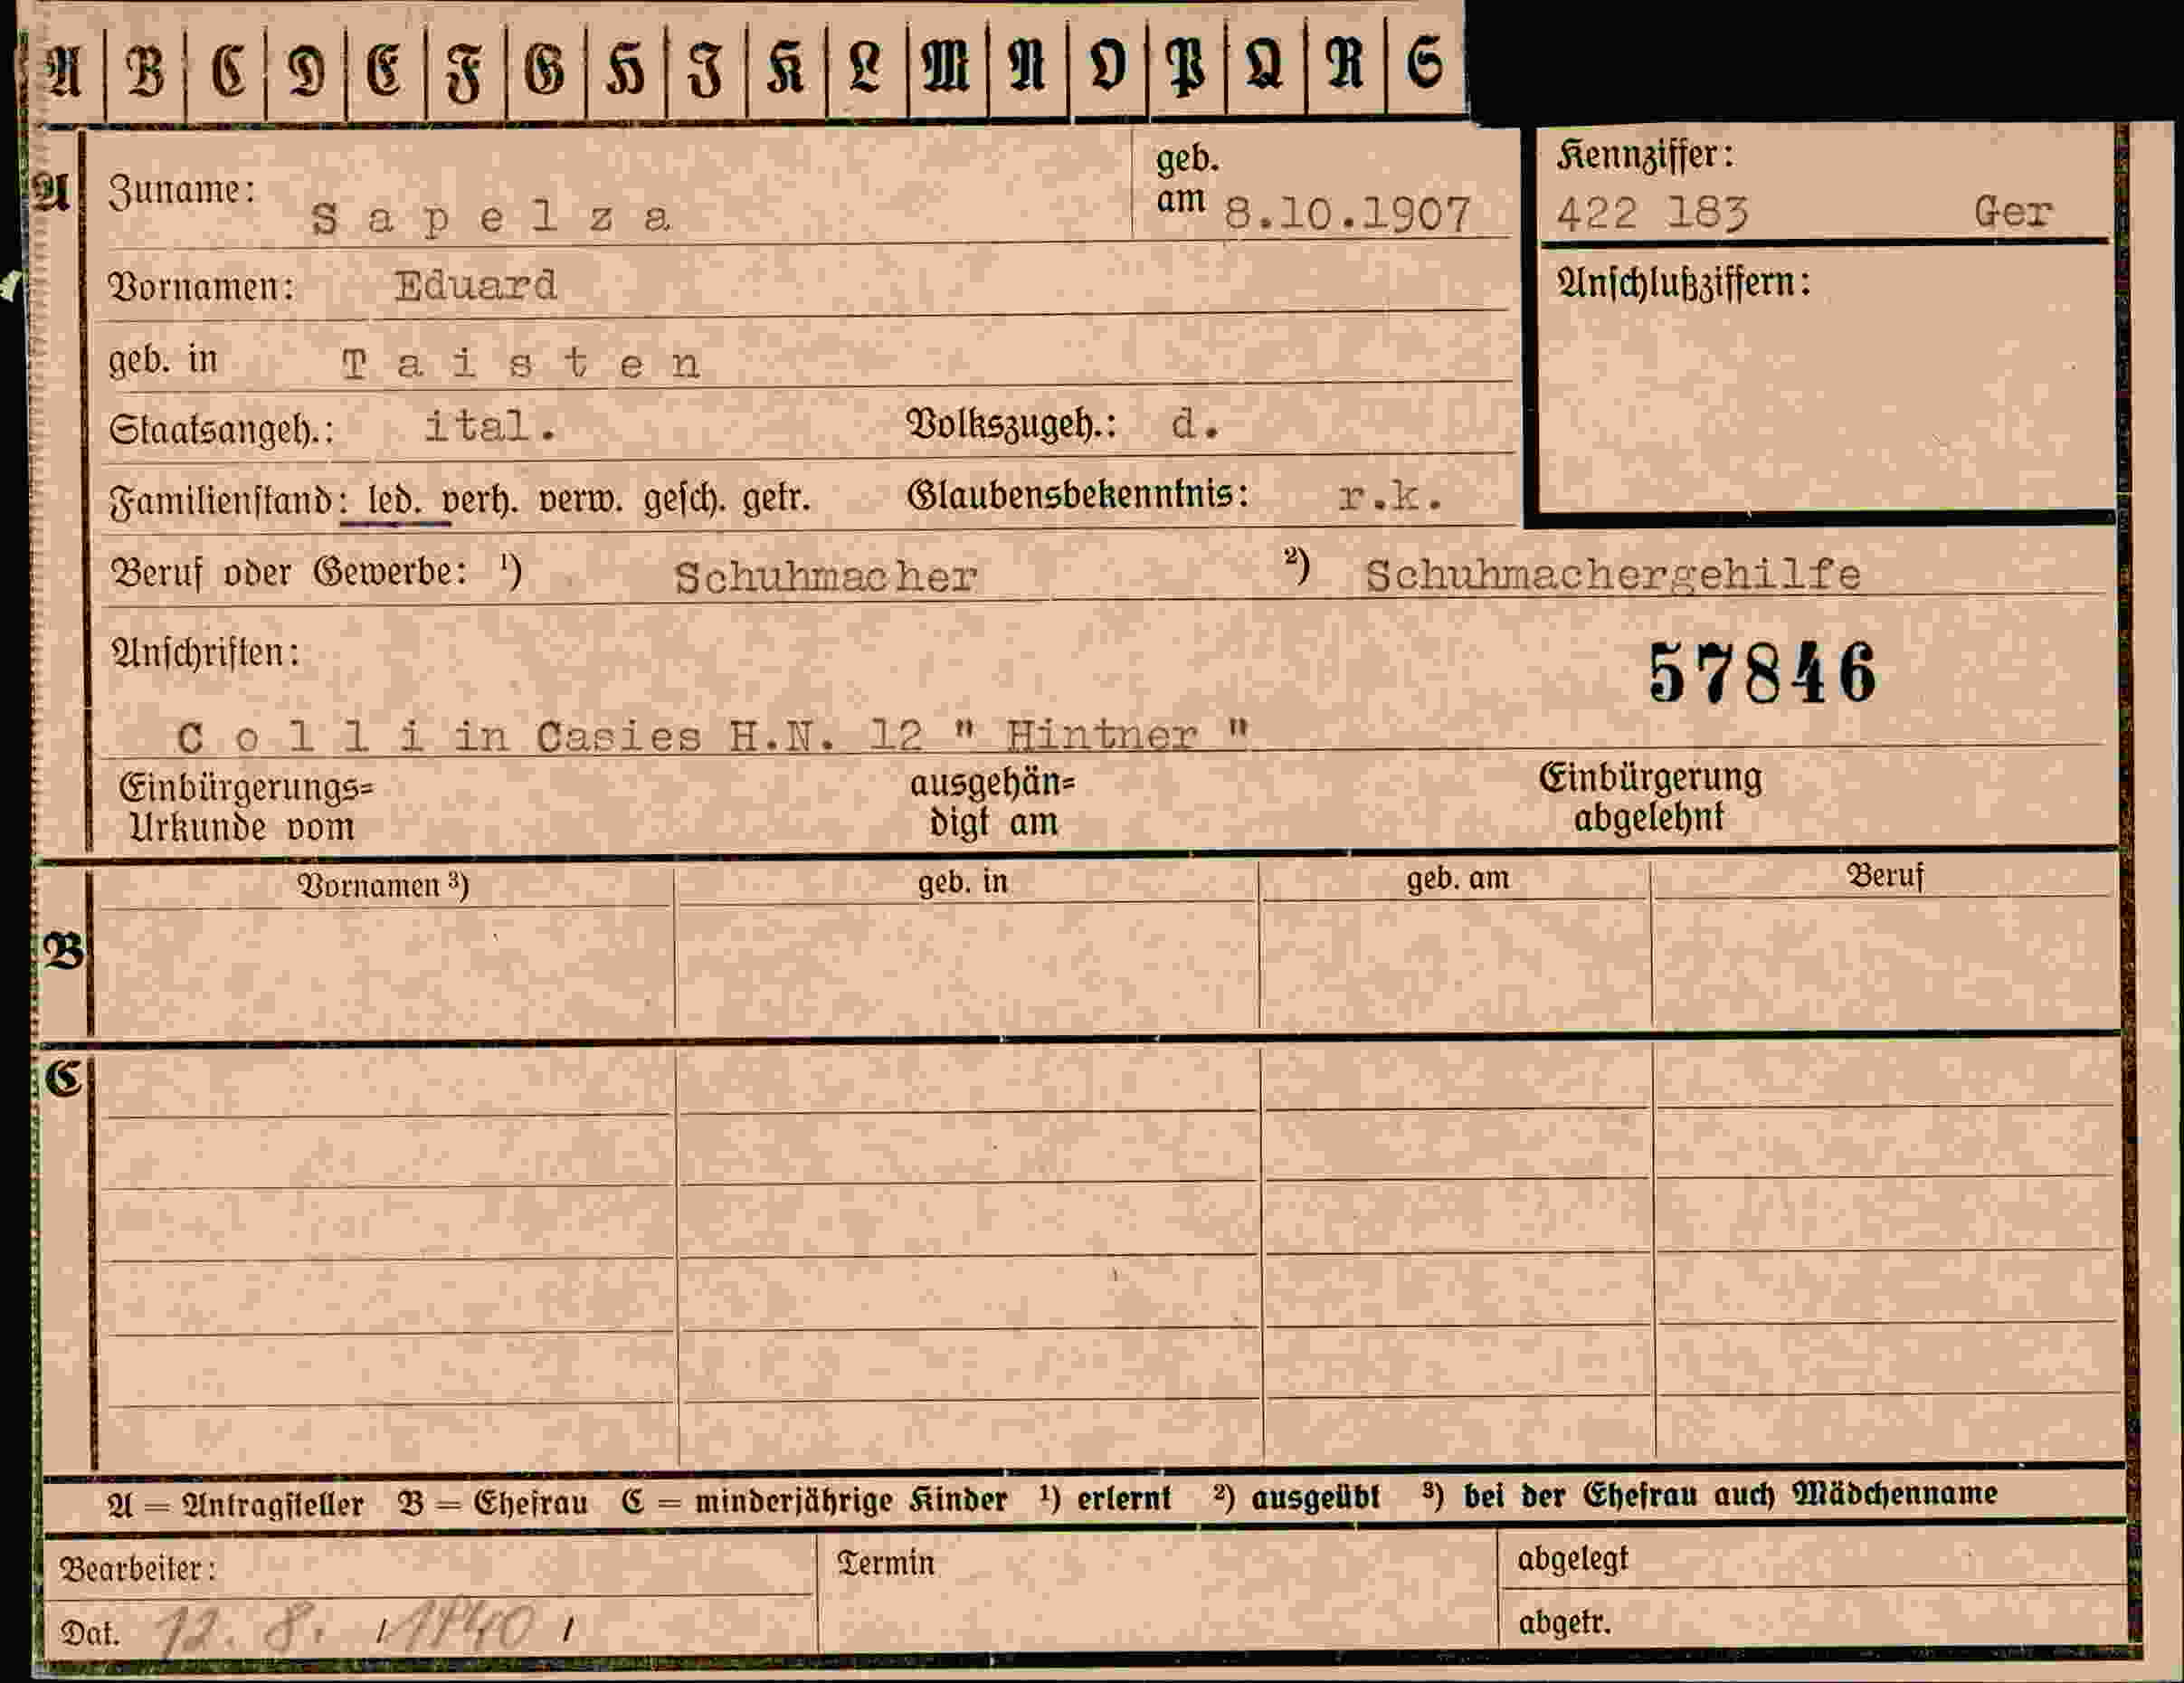 A B C D E F G H I K L M N O P Q R S
A Zuname: Sapelza geb. am 8.10.1907
Kennziffer: 422 183 Ger
Vornamen: Eduard
Anschlußziffern:
geb. in Taisten
Staatsangeh.: ital. Volkszugeh.: d.
Familienstand: led. verh. verw. gesch. getr. Glaubensbekenntnis: r.k.
Beruf oder Gewerbe: ¹) Schuhmacher ²) Schuhmachergehilfe
Anschriften:
57846
Colli in Casies H.N. 12 " Hintner "
Einbürgerungs= ausgehän= Einbürgerung
Urkunde vom digt am abgelehnt
Vornamen ³) geb. in geb. am Beruf
B
C
A = Antragsteller B = Ehefrau C = minderjährige Kinder ¹) erlernt ²) ausgeübt ³) bei der Ehefrau auch Mädchenname
Bearbeiter: Termin abgelegt
Dat. 12. 8. 1940 abgetr.